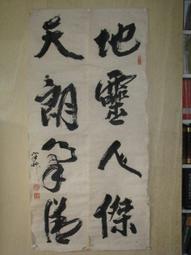 地靈人傑
天朗氣清